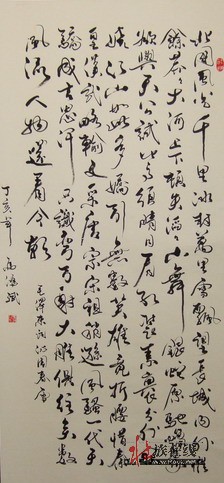 北国风光千里冰封万里雪飘望长城内外惟
余莽莽大河上下顿失滔滔山舞银蛇原驰蜡象
欲与天公试比高须晴日看红装素裹分外
妖娆江山如此多娇引无数英雄竞折腰惜秦
皇汉武略输文采唐宗宋祖稍逊风骚一代天
骄成吉思汗只识弯弓射大雕俱往矣数
风流人物还看今朝
毛泽东词沁园春雪
丁亥年